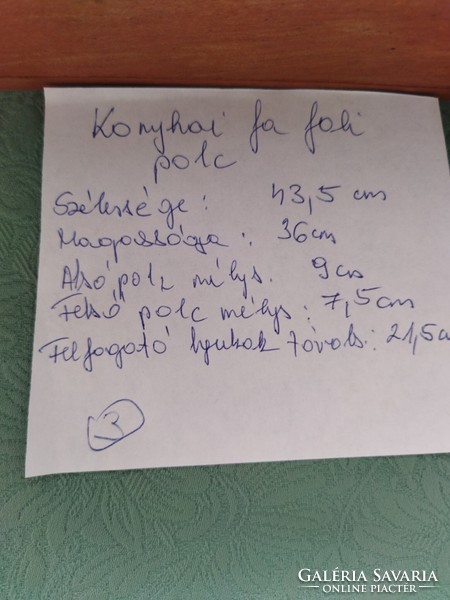 Konyhai fa fali
polc
Szélessége: 43,5 cm
Magassága: 36cm
Alsó polc mélys. 9cm
Felső polc mélys: 7,5cm
Felfogató lyukak távols: 21,5c
3
GALÉRIA SAVARIA
ONLINE PIACTÉR